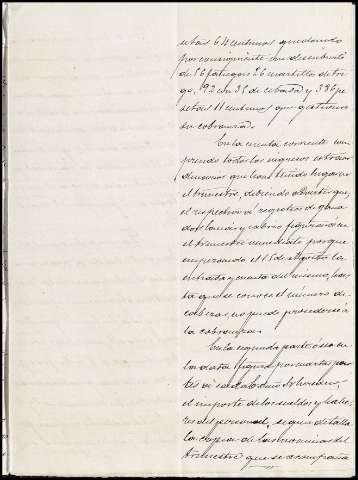 setas 62 centimos quedando
por consiguiente un descubierto
de 56 fanegas 26 cuartillos de tri-
go, 92 con 35 de cebada y 386 pe-
setas 11 centimos que gestiono
su cobranza.
En la cuenta corriente com-
prendo todos los ingresos estraor-
dinarios que han tenido lugar en
el trimestre, debiendo advertir que,
el respectivo á registros de gana-
dos lanar y cabrio figurará en
el trimestre inmediato porque
empezando el 15 de Agosto la
entrada y cuenta del mismo, has-
ta que se conoce el número de
cabezas, no puede procederse á
la cobranza.
En la segunda parte ó sea en
la data figura por
tes á cada
el importe de los sueldos y habe-
res del personal, segun detalla
la copia de las nominas del
trimestre que se acompaña